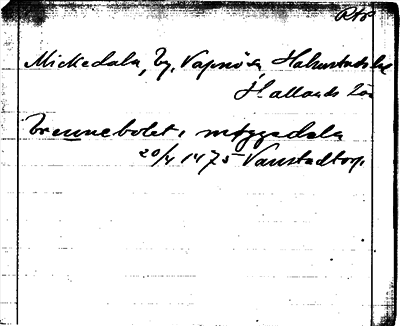 Mickedala, by, Vapnö sn Halmstads hd
Hallands län
brennebolet i møggedala
20/4 1475 Vanstadtorp.